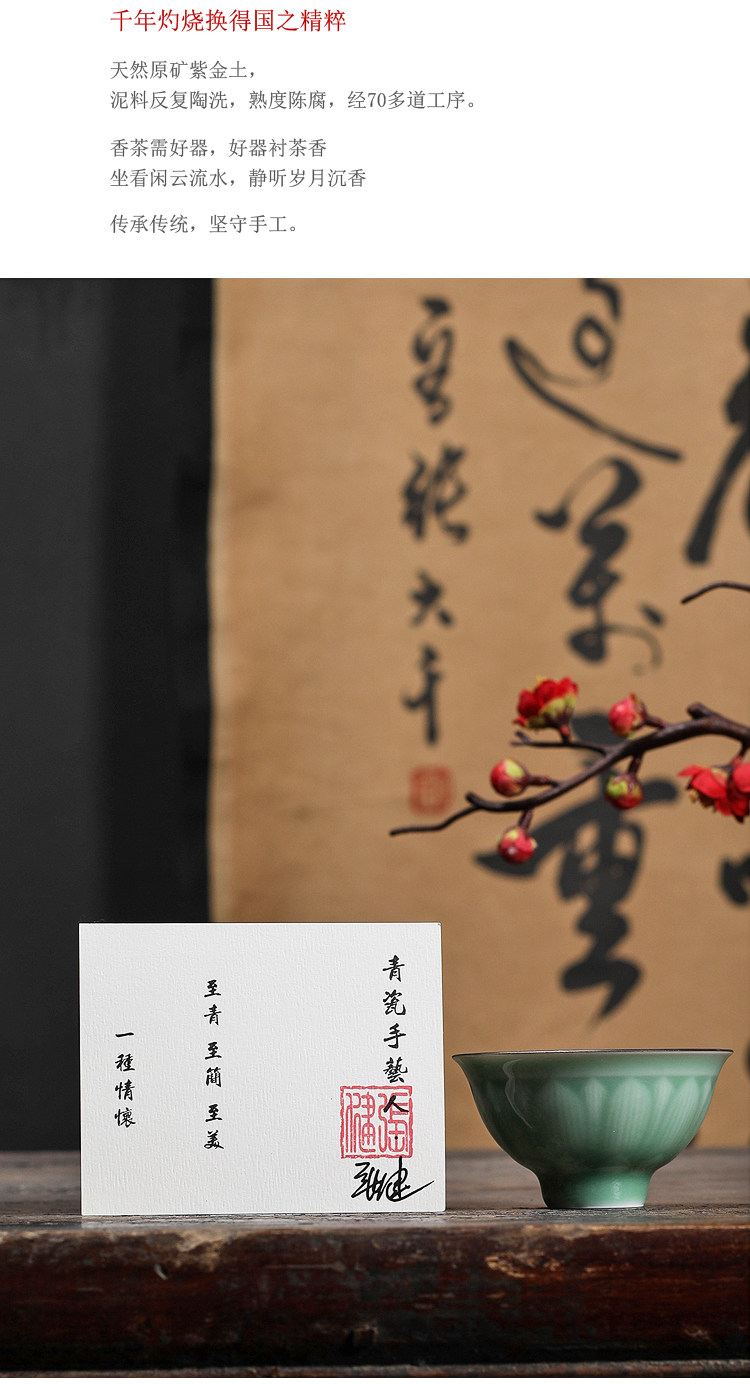 千年灼烧换得国之精粹
天然原矿紫金土，
泥料反复陶洗，熟度陈腐，经70多道工序。
香茶需好器，好器衬茶香
坐看闲云流水，静听岁月沉香
传承传统，坚守手工。
萬重
大千
青瓷手藝人·
至青 至簡 至美
一種情懷